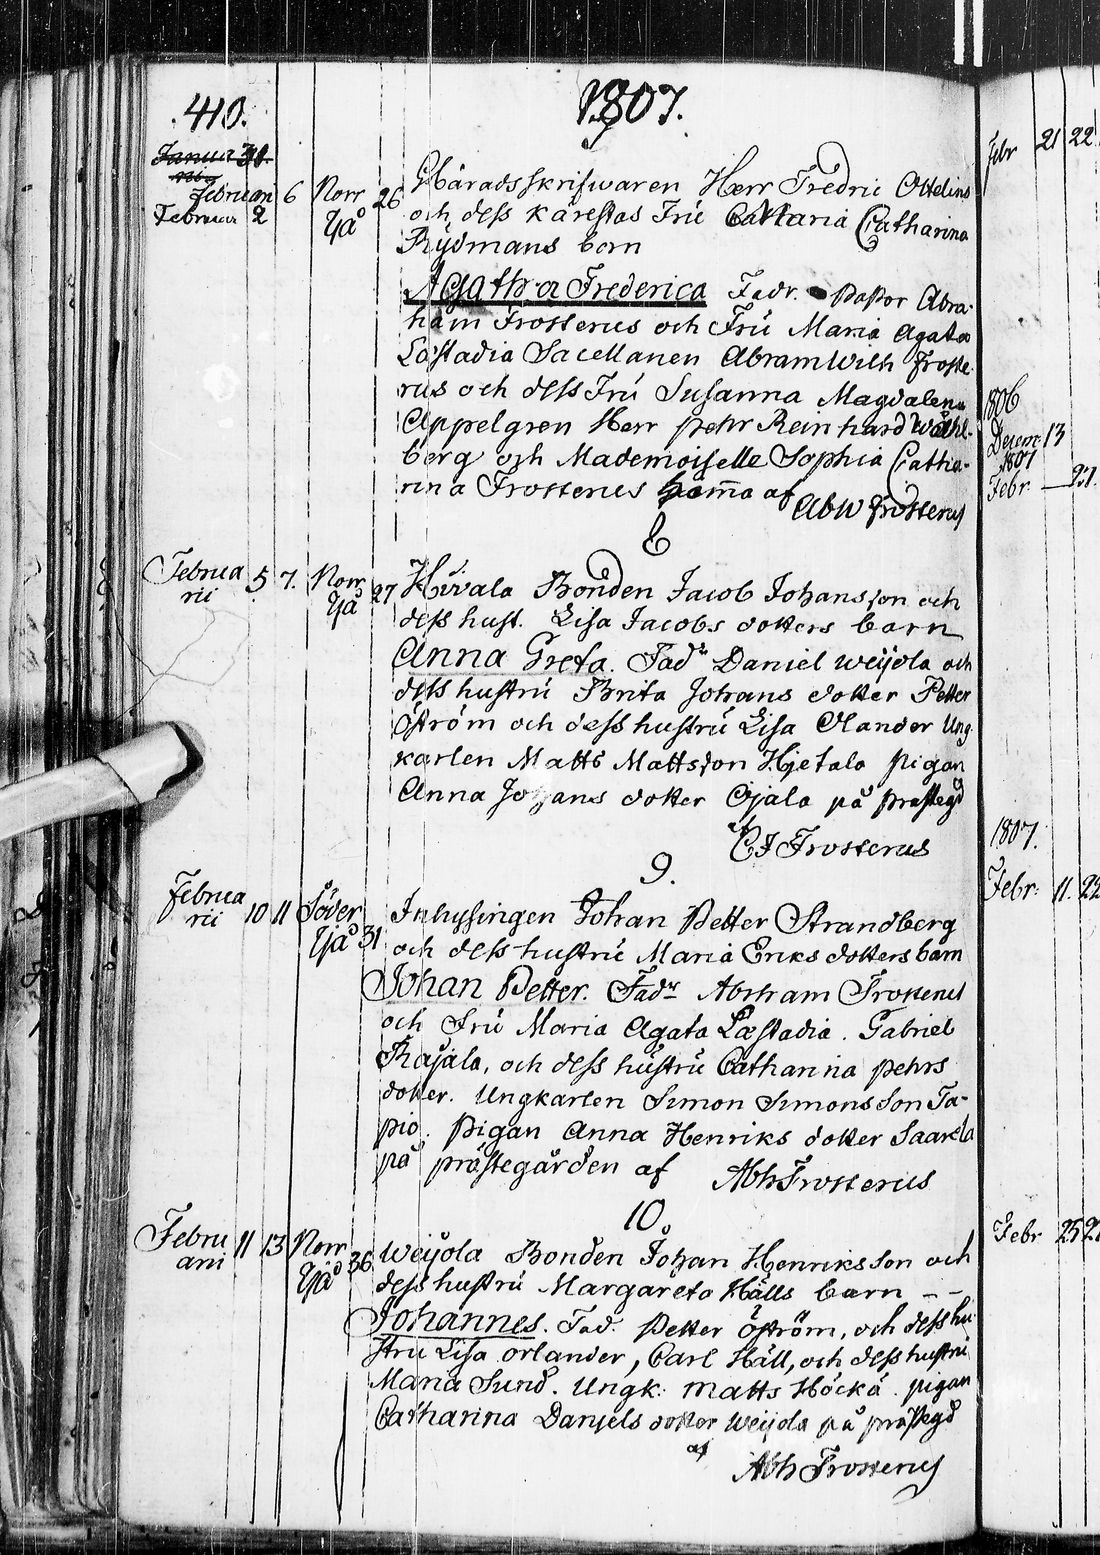 410.
1807.
7
Januari 31
Februari 6 Norr 26
Februar 2 Yjå
Häradsskrifwaren Herr Fredric Ottelins
och dess Kärestas Fru Catharina
Rydmans barn
Agatha Frederica Fadr. Pastor Abra-
ham Frosterus och Fru Maria Agata
Læstadia Sacellanen Abram Wilh Froste-
rus och dess Fru Susanna Magdalena
Appelgren Herr Pehr Reinhard Wåhl-
berg och Mademoiselle Sophia Catha-
rina Frosterus hæma af
AbW Frosterus
8
Februa 5 7. Norr 27
rii Yjå
Huvala Bonden Jacob Johansson och
dess hust. Lisa Jacobs dotters barn
Anna Greta. Fadr Daniel Weijola och
dess hustru Brita Johans dotter Petter
Öström och dess hustru Lisa Olander Ung-
karlen Matts Mattsson Hjetala Pigan
Anna Johans dotter Ojala på prästegd
af
CJ Frosterus
9.
Februa 10 11 Söder
rii Yjå 31
Inhysingen Johan Petter Strandberg
och dess hustru Maria Eriks dotters barn
Johan Petter. Fadr Abraham Frosterus
och Fru Maria Agata Læstadia. Gabriel
Rajala, och dess hustru Catharina Pehrs
dotter. Ungkarlen Simon Simonsson Ta-
pio. Pigan Anna Henriks dotter Saarela
på prästegården af
Abh Frosterus
10.
Febru 11 13 Norr
arii Yjå 36
Weijola Bonden Johan Henriksson och
dess hustru Margareta Hälls barn - -
Johannes. Fad. Petter Öström, och dess hu-
stru Lisa Orlander, Carl Häll, och dess hustru
Maria Sund. Ungk. Matts Höckå. pigan
Catharina Danjels dotter Weijola på prästegd
af
Abh Frosterus
Febr 21 22
1806
Decem 13
1807
Febr. — 27.
1807.
Febr. 11. 22
Febr 25